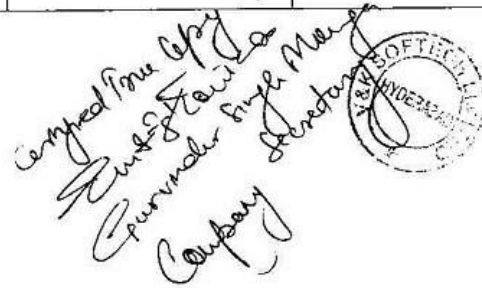 Certified True Copy
Gurvinder Singh Monga
Company Secretary
V&K SOFTECH LIMITED
HYDERABAD